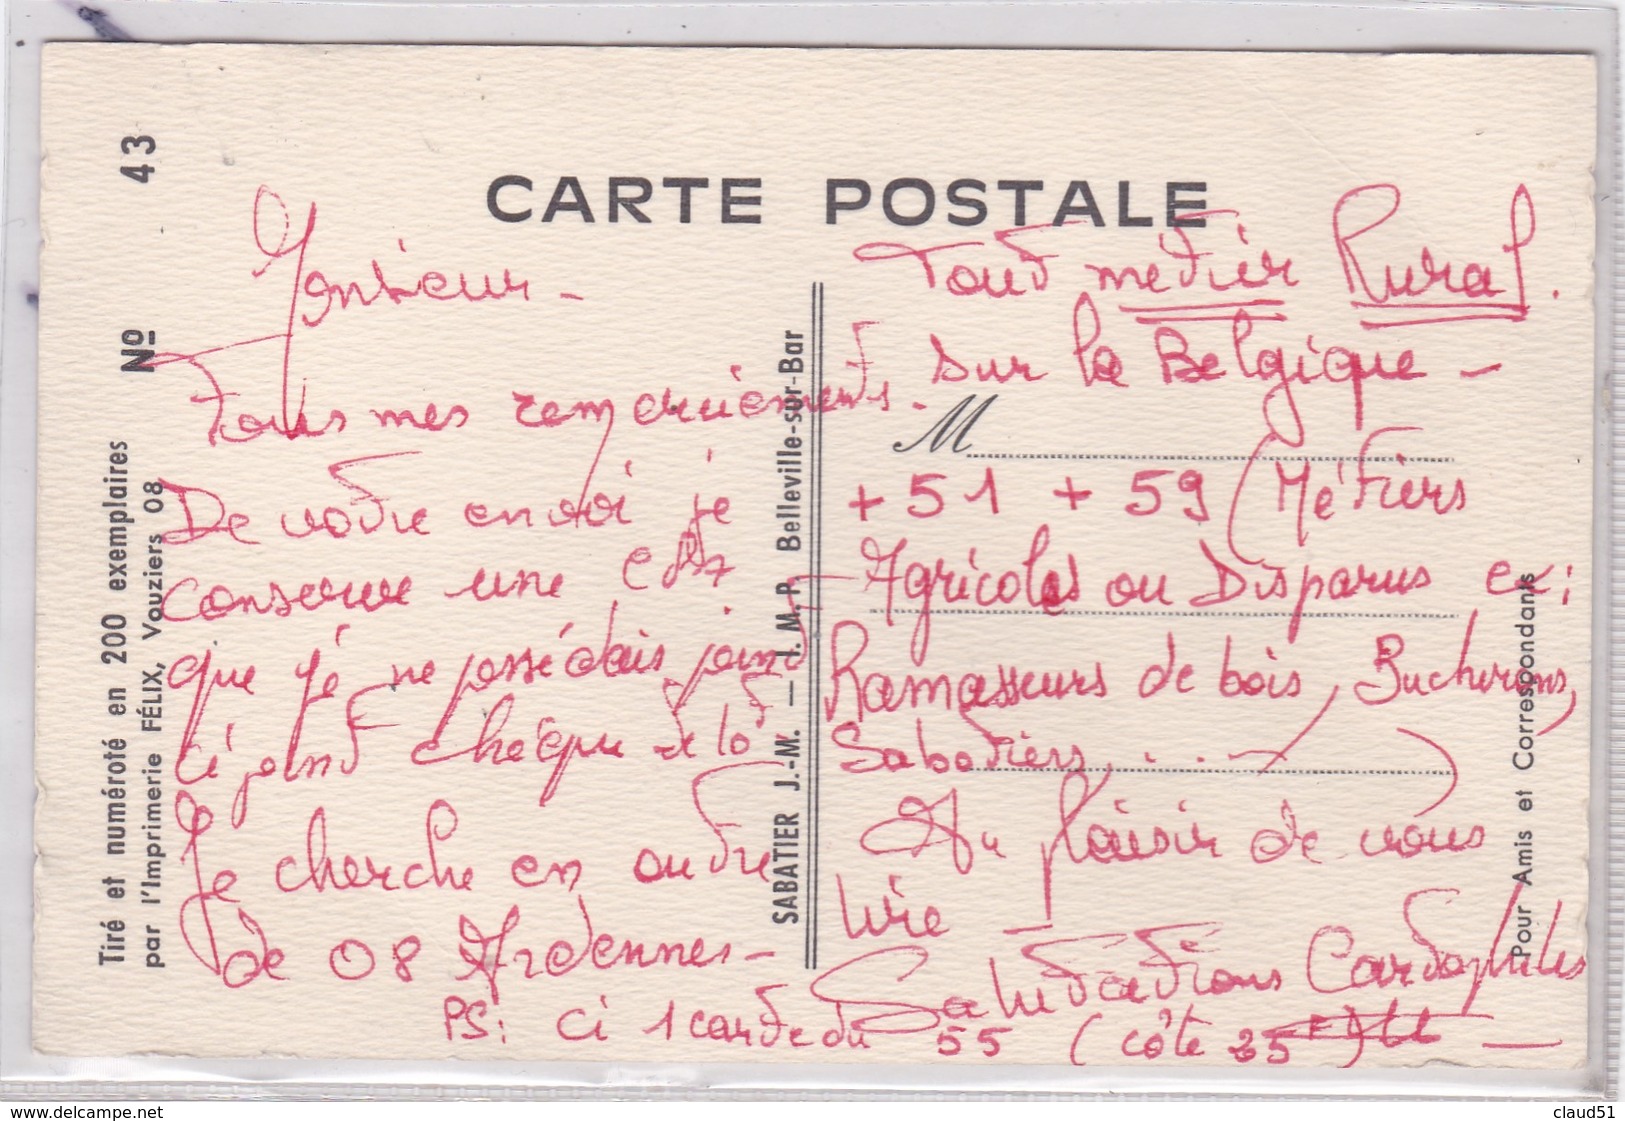 CARTE POSTALE
Tiré et numéroté en 200 exemplaires N° 43
par l'Imprimerie FÉLIX, Vouziers 08
Monsieur -
Tous mes remerciements.
De votre envoi je
conserve une
que je ne possédais, joint
ci joint chèque de
Je cherche en outre
de 08 Ardennes -
SABATIER J.-M. — I. M. P. Belleville-sur-Bar
Tout métier Rural.
sur la Belgique -
M
+ 51 + 59 (Métiers
Agricoles ou Disparus ex:
Ramasseurs de bois, Bucherons,
Sabotiers, . . . )
Au plaisir de vous
lire -
Salutations Cartophiles
PS: ci 1 carte du 55 (côte 25F)
Pour Amis et Correspondants
www.delcampe.net
claud51